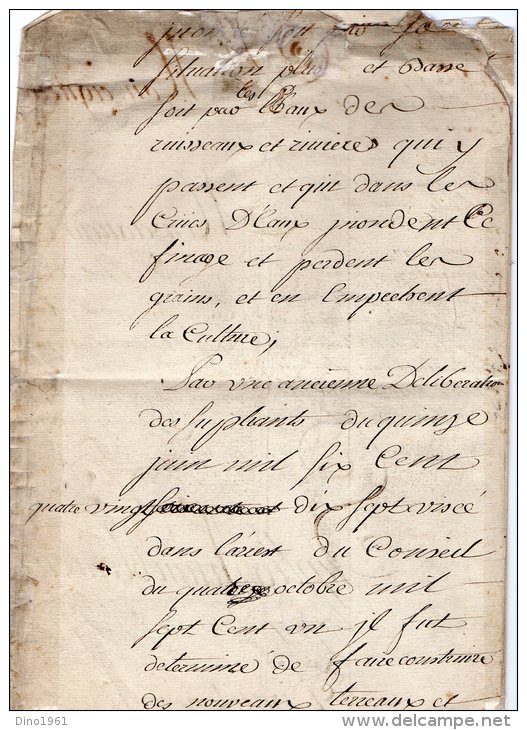 situation plate et basse
soit par les Eaux des
ruisseaux et rivieres qui y
passent et qui dans les
Crües D'Eaux jnondent Le
finage et perdent les
grains, et en Empechent
la Culture;
Par une ancienne Deliberation
des supliants du quinze
juin mil six Cent
quatre vingt dix sept viscé
dans larest du Conseil
du quatre octobre mil
sept Cent un jl fut
determiné de faire construire
des nouveaux terreaux et
Dino1961
delcampe.net